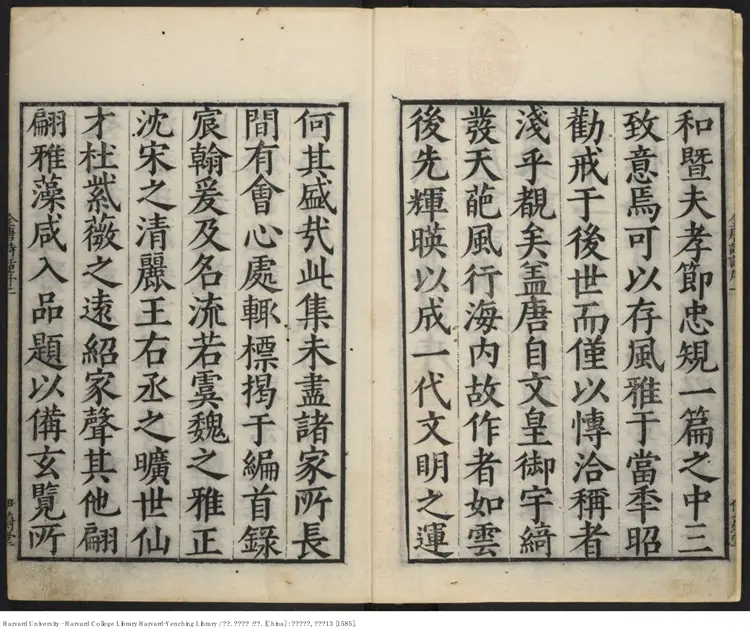 和暨夫孝節忠䂓一篇之中三
致意焉可以存風雅于當秊昭
勸戒于後世而僅以愽洽稱者
淺乎覩矣盖唐自文皇御宇綺
發天葩風行海内故作者如雲
後先輝暎以成一代文明之運
何其盛㢤此集未盡諸家所長
間有會心處輒標揭于編首録
宸翰爰及名流若虞魏之雅正
沈宋之清麗王右丞之曠世仙
才杜紫薇之遠紹家聲其他翩
翩雅藻咸入品題以備玄覽所
Harvard University - Harvard College Library Harvard-Yenching Library / ??. ???? :??. [China] : ?????, ???13 [1585].